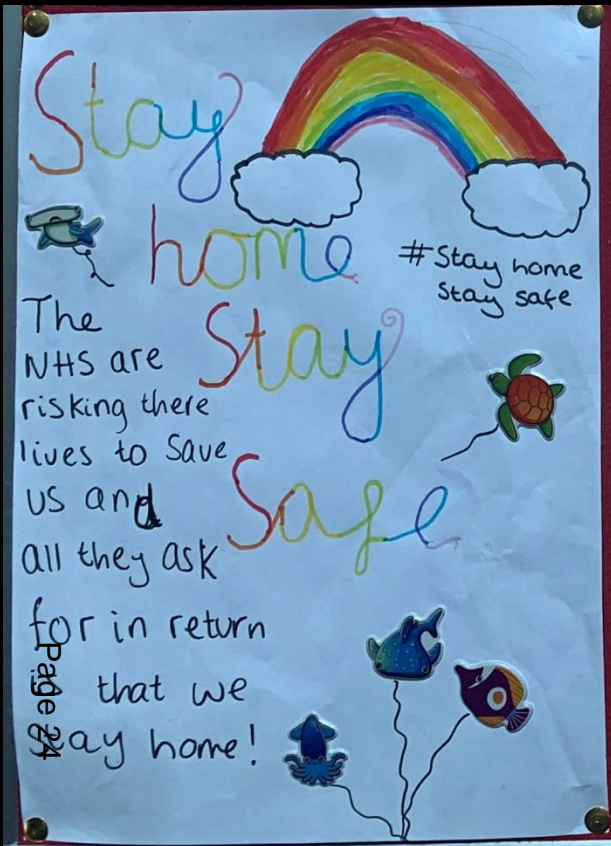 Stay
home
Stay
Safe
#Stay home
Stay safe
The
NHS are
risking there
lives to save
us and
all they ask
for in return
is that we
stay home!
Page 24